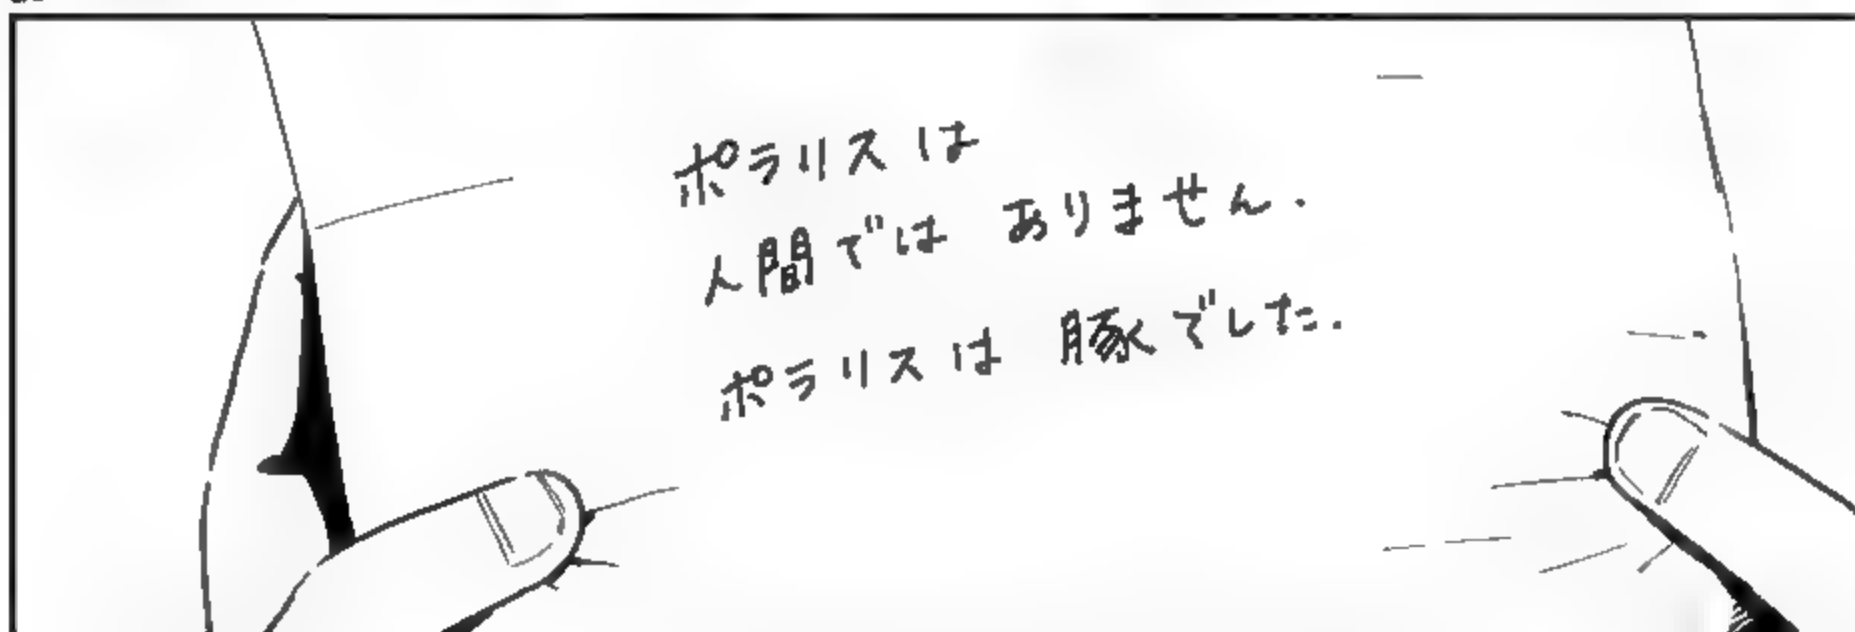 ポラリスは
人間ではありません.
ポラリスは 豚でした.